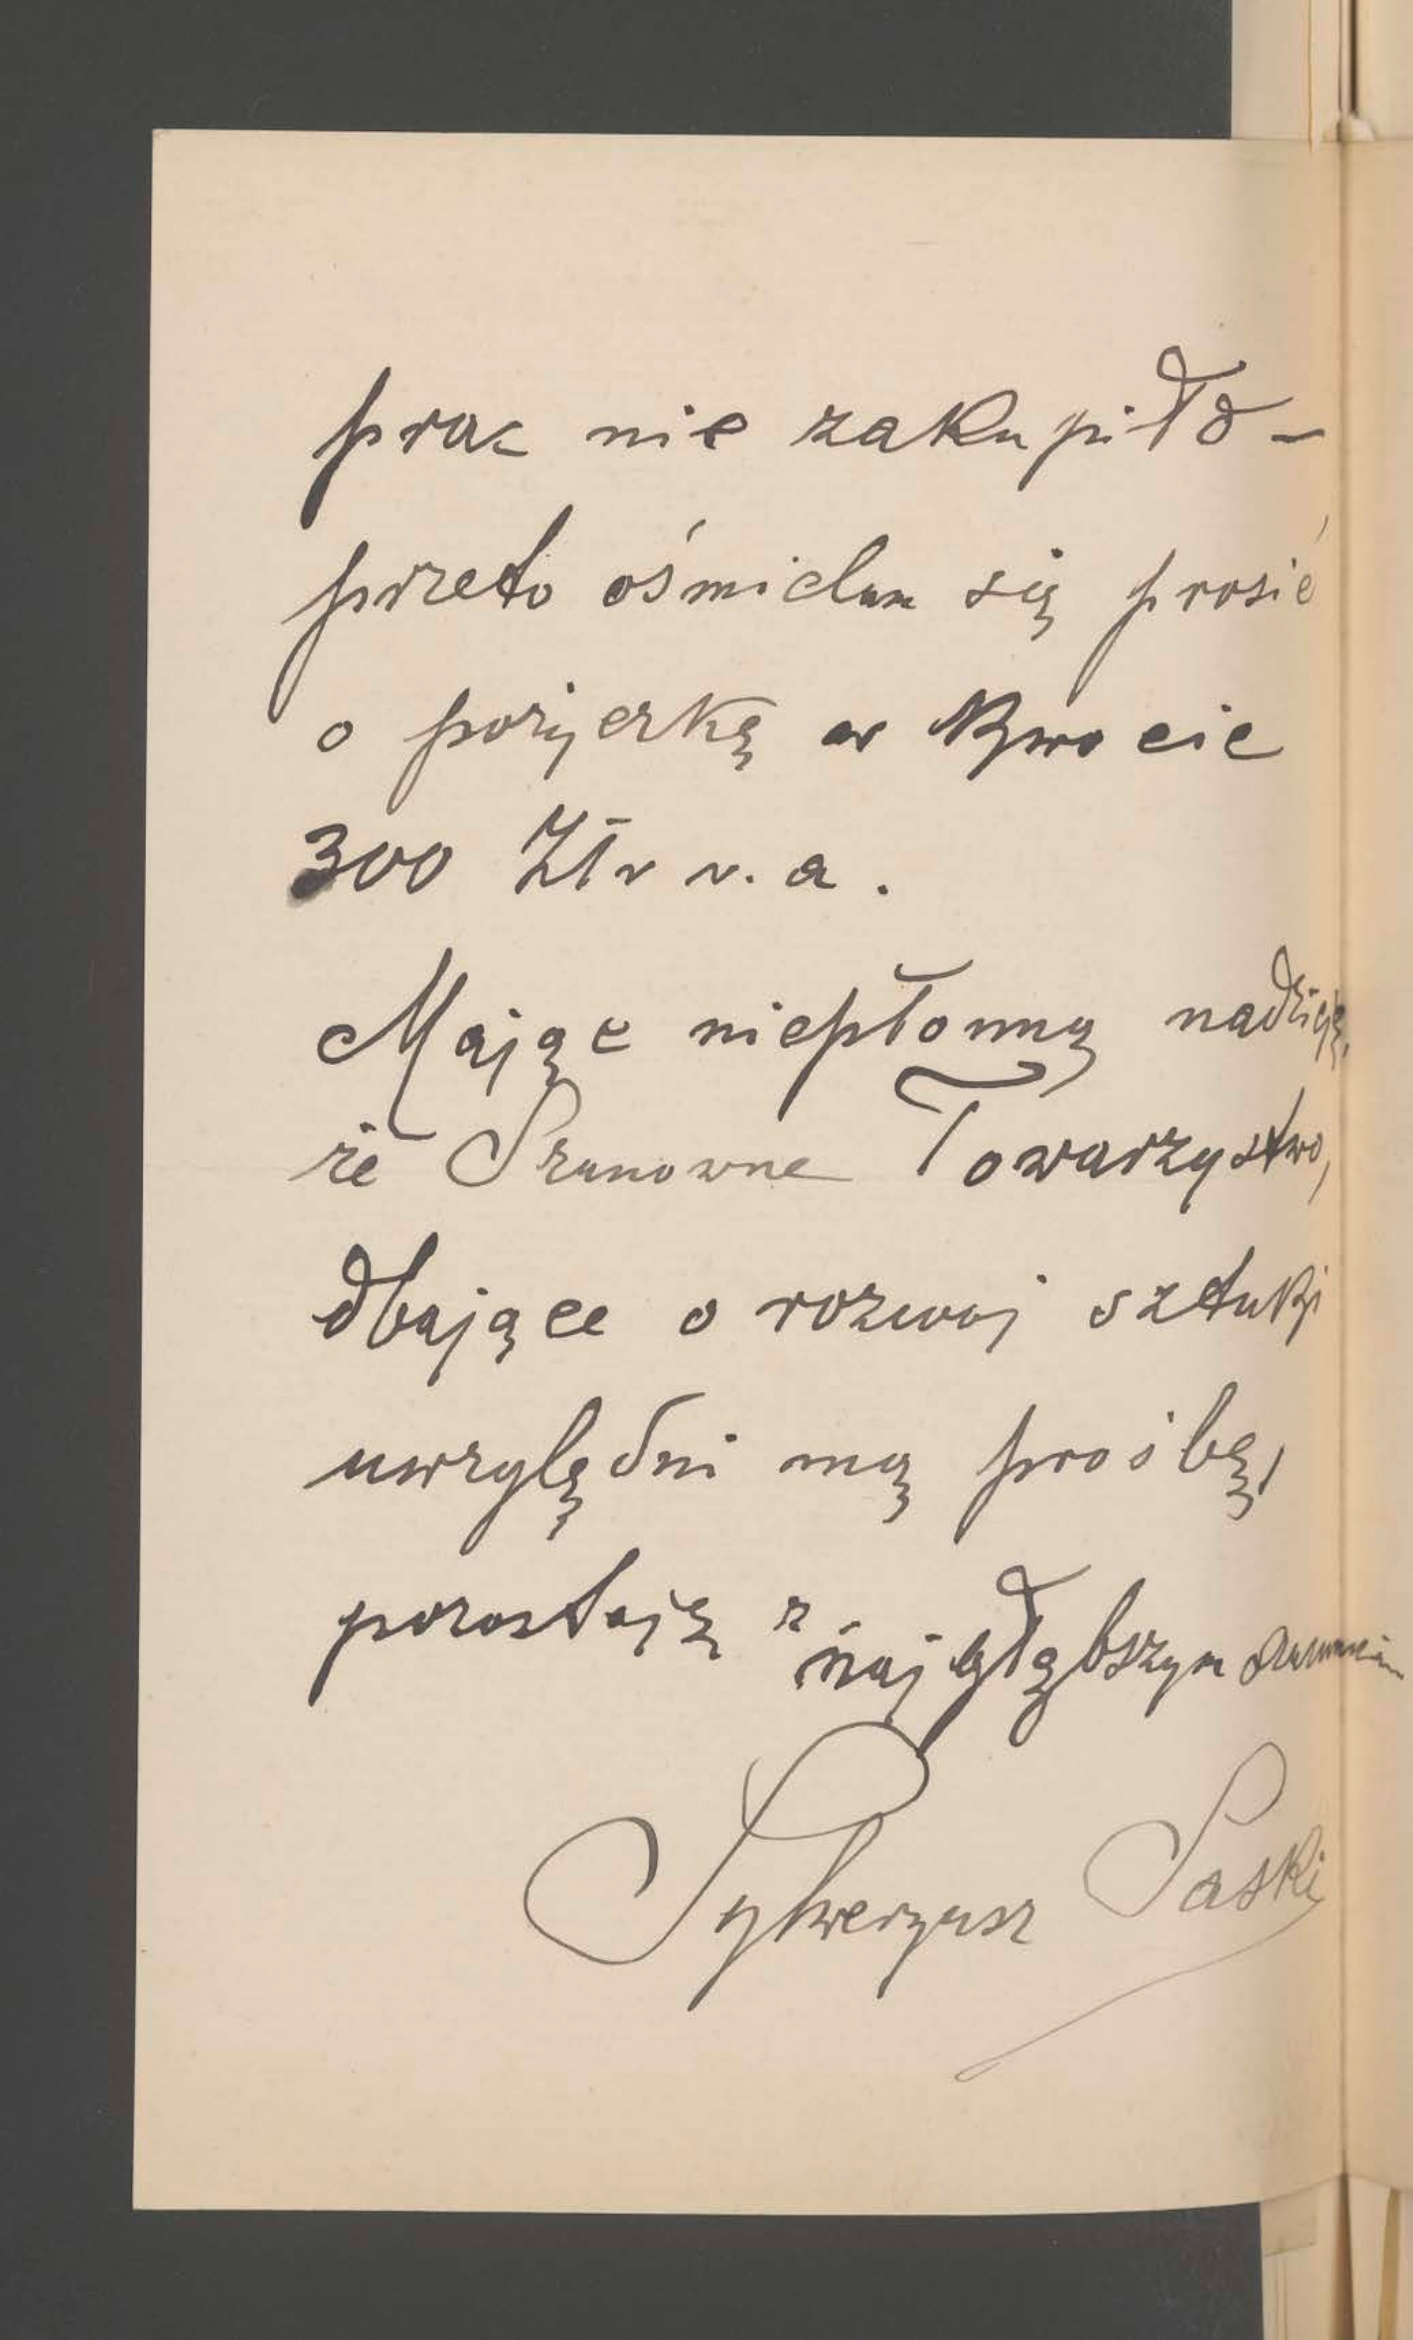 prac nie zakupiło –
przeto ośmielam się prosić
o pożyczkę w kwocie
300 Złr v. a.
Mając niepłonną nadzieję,
że Szanowne Towarzystwo,
dbające o rozwoj sztuki
uwzględni mą prośbę,
pozostaję z najgłębszym
Sylweryusz Saski